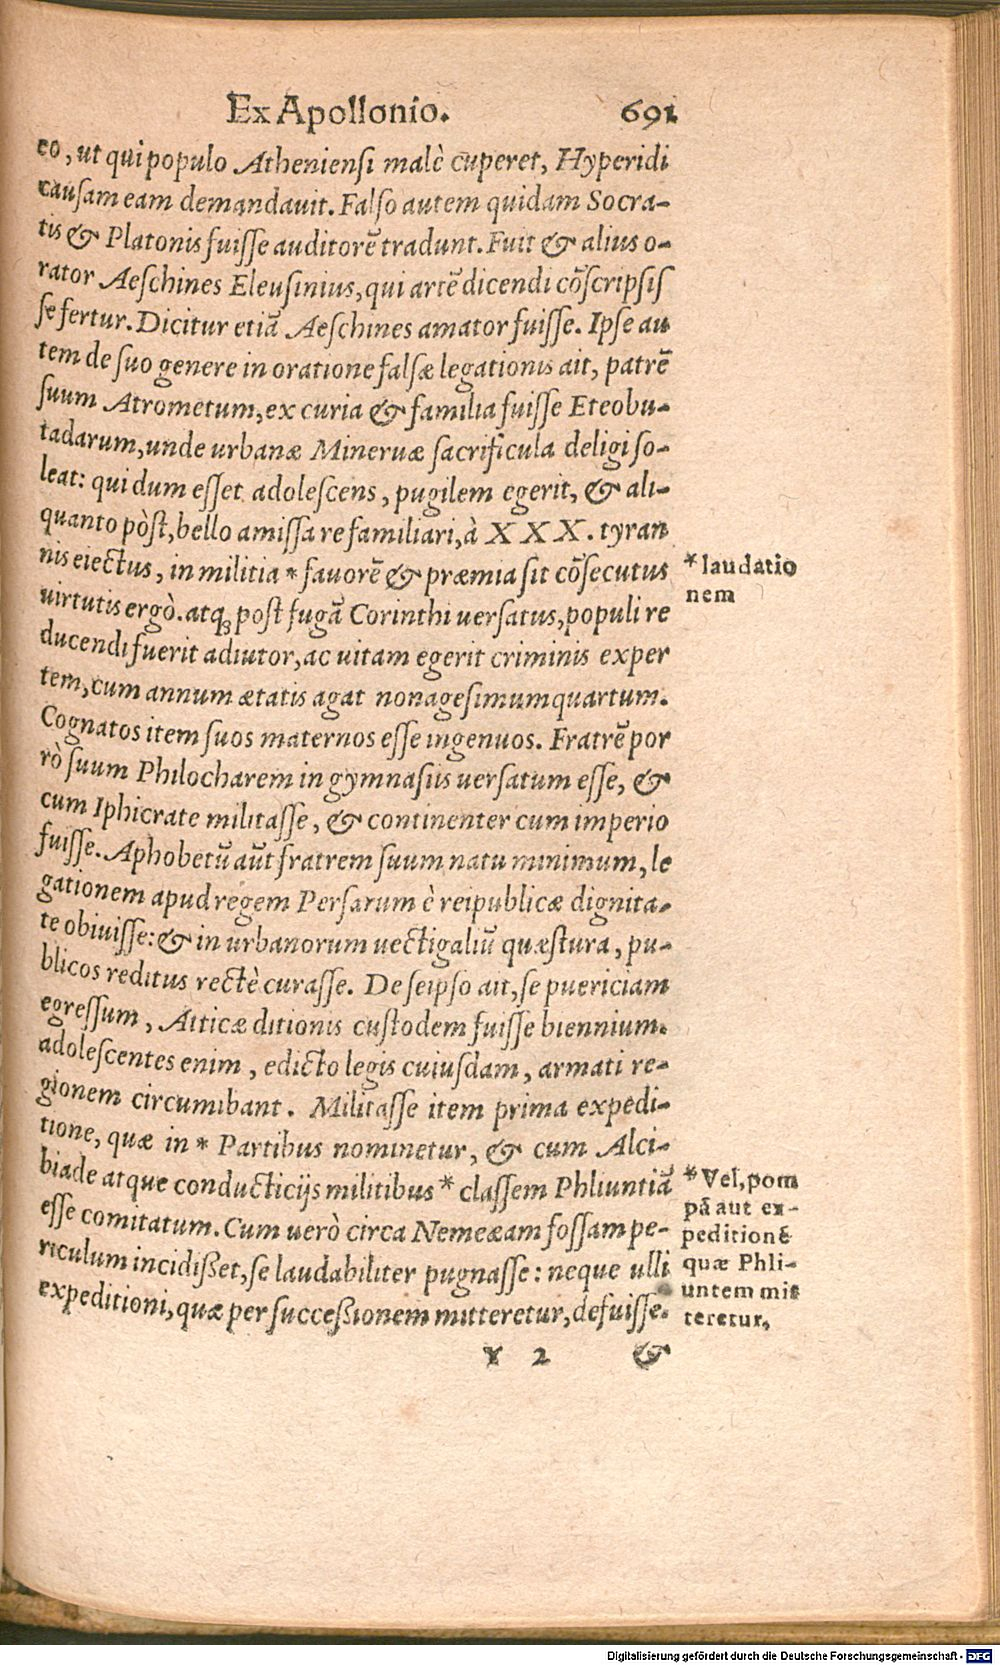 Ex Apollonio. 691
eo, ut qui populo Atheniensi malè cuperet, Hyperidi
causam eam demandauit. Falso autem quidam Socra-
tis & Platonis fuiſſe auditorē tradunt. Fuit & alius o-
rator Aeſchines Eleusinius, qui artē dicendi cōſcripsiſ
ſe fertur. Dicitur etiā Aeſchines amator fuiſſe. Ipſe au
tem de ſuo genere in oratione falſæ legationis ait, patrē
ſuum Atrometum, ex curia & familia fuiſſe Eteobu-
tadarum, unde urbanæ Mineruæ ſacrificula deligi ſo-
leat: qui dum eſſet adoleſcens, pugilem egerit, & ali-
quanto pòſt, bello amiſſa re familiari, à XXX. tyran
nis eiectus, in militia * fauorē & præmia ſit cōſecutus
uirtutis ergò. atq; poſt fugā Corinthi uerſatus, populi re
ducendi fuerit adiutor, ac uitam egerit criminis exper
tem, cum annum ætatis agat nonageſimumquartum.
Cognatos item ſuos maternos eſſe ingenuos. Fratrē por
rò ſuum Philocharem in gymnaſiis uerſatum eſſe, &
cum Iphicrate militaſſe, & continenter cum imperio
fuiſſe. Aphobetū aūt fratrem ſuum natu minimum, le
gationem apud regem Perſarum è reipublicæ dignita-
te obiuiſſe: & in urbanorum uectigaliū quæſtura, pu-
blicos reditus rectè curaſſe. De ſeipſo ait, ſe puericiam
egreſſum, Atticæ ditionis cuſtodem fuiſſe biennium.
adoleſcentes enim, edicto legis cuiuſdam, armati re-
gionem circumibant. Militaſſe item prima expedi-
tione, quæ in * Partibus nominetur, & cum Alci-
biade atque conducticijs militibus * claſſem Phliuntiā
eſſe comitatum. Cum uerò circa Nemeæam foſſam pe-
riculum incidißet, ſe laudabiliter pugnaſſe: neque ulli
expeditioni, quæ per ſucceßionem mitteretur, defuiſſe.
Y 2 &
* laudatio
nem
* Vel, pom
pā aut ex-
peditionē
quæ Phli-
untem mit
teretur,
Digitalisierung gefördert durch die Deutsche Forschungsgemeinschaft - DFG